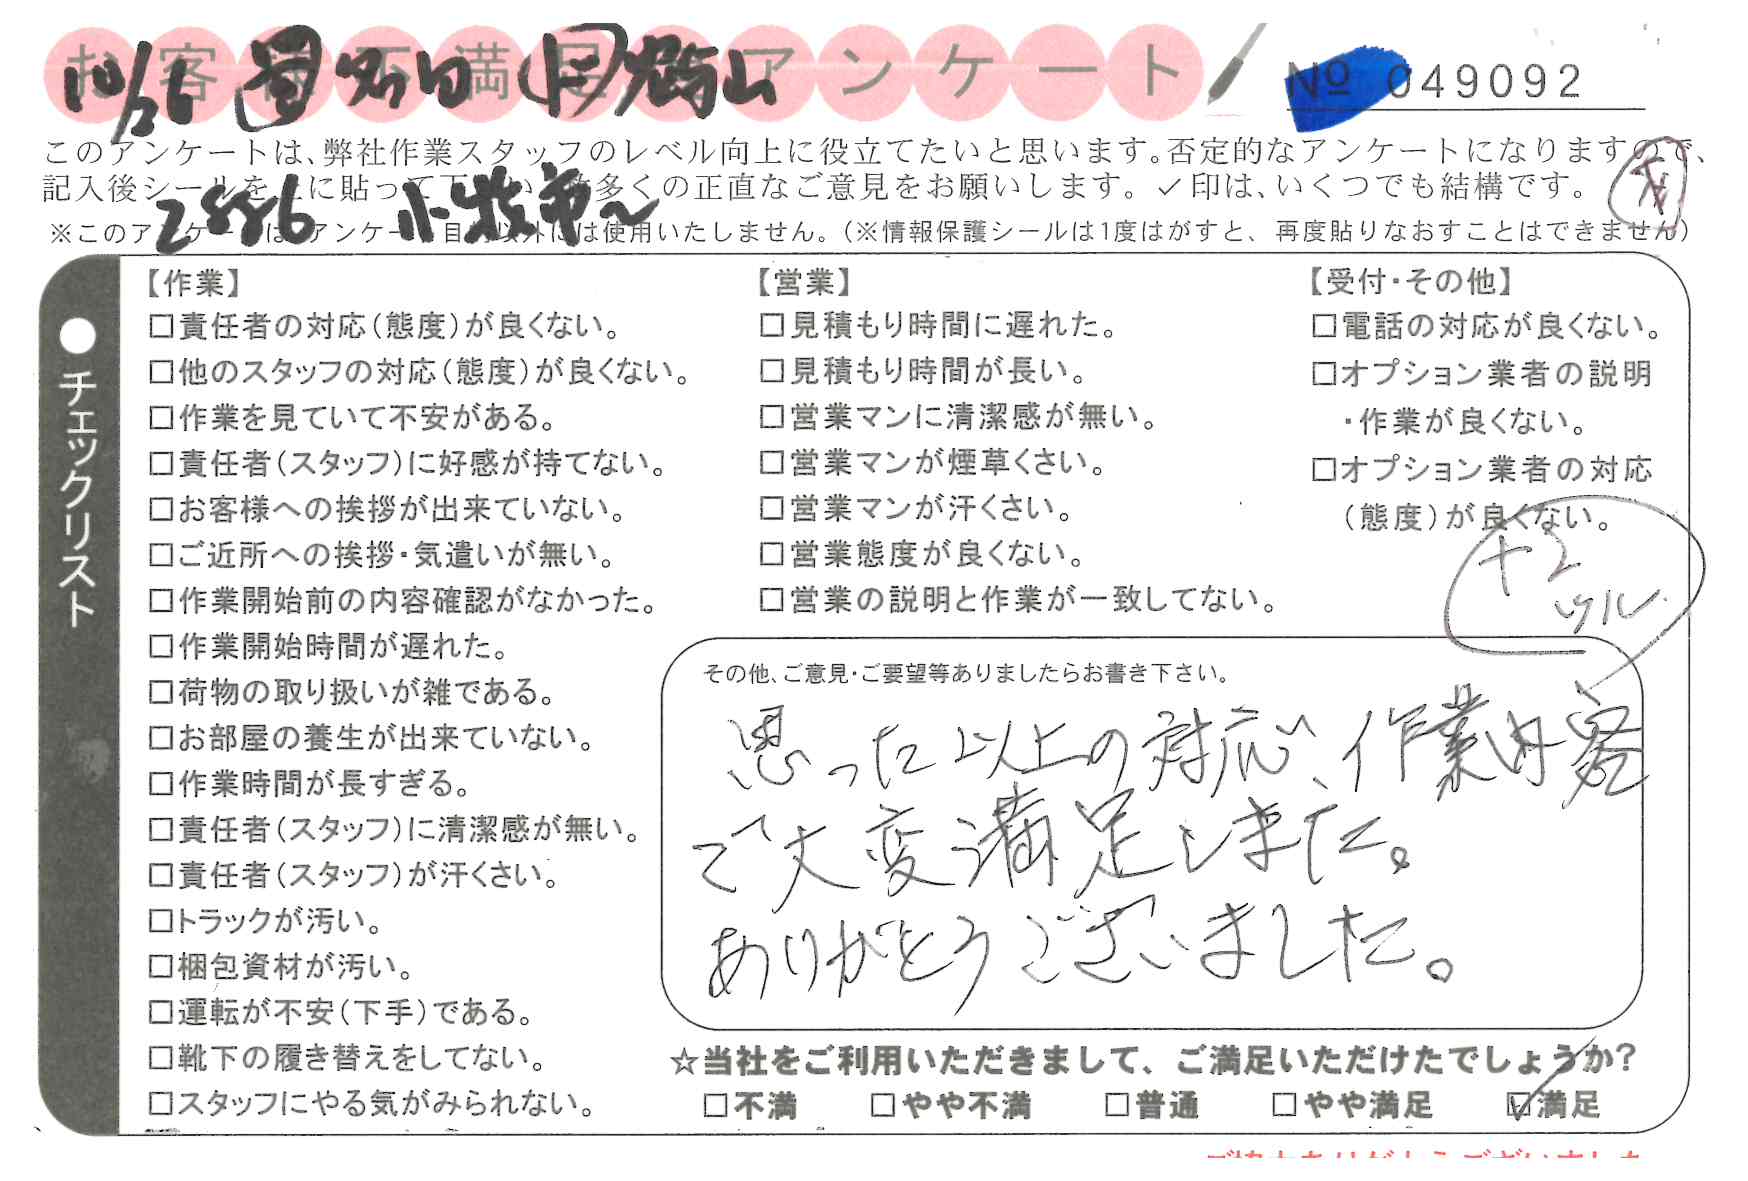 お客様不満足度アンケート
No 049092
10/26
このアンケートは、弊社作業スタッフのレベル向上に役立てたいと思います。否定的なアンケートになりますので、
記入後シールを上に貼って下さい。数多くの正直なご意見をお願いします。✓印は、いくつでも結構です。
2886 小牧市〜
※このアンケートは、アンケート目的以外には使用いたしません。（※情報保護シールは1度はがすと、再度貼りなおすことはできません）
●チェックリスト
【作業】
□責任者の対応（態度）が良くない。
□他のスタッフの対応（態度）が良くない。
□作業を見ていて不安がある。
□責任者（スタッフ）に好感が持てない。
□お客様への挨拶が出来ていない。
□ご近所への挨拶・気遣いが無い。
□作業開始前の内容確認がなかった。
□作業開始時間が遅れた。
□荷物の取り扱いが雑である。
□お部屋の養生が出来ていない。
□作業時間が長すぎる。
□責任者（スタッフ）に清潔感が無い。
□責任者（スタッフ）が汗くさい。
□トラックが汚い。
□梱包資材が汚い。
□運転が不安（下手）である。
□靴下の履き替えをしてない。
□スタッフにやる気がみられない。
【営業】
□見積もり時間に遅れた。
□見積もり時間が長い。
□営業マンに清潔感が無い。
□営業マンが煙草くさい。
□営業マンが汗くさい。
□営業態度が良くない。
□営業の説明と作業が一致してない。
【受付・その他】
□電話の対応が良くない。
□オプション業者の説明
・作業が良くない。
□オプション業者の対応
（態度）が良くない。
+2
その他、ご意見・ご要望等ありましたらお書き下さい。
思った以上の対応、作業内容
で大変満足しました。
ありがとうございました。
☆当社をご利用いただきまして、ご満足いただけたでしょうか？
□不満 □やや不満 □普通 □やや満足 ☑満足
ご協力ありがとうございました